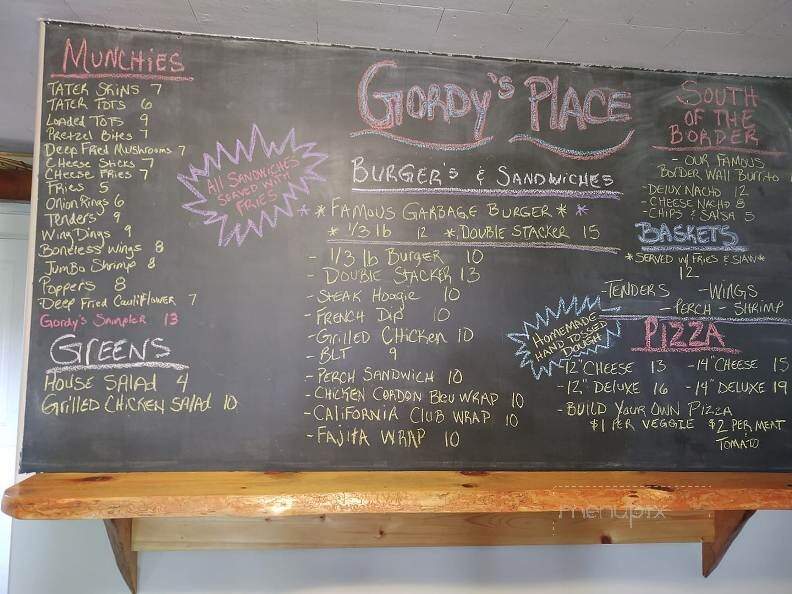 MUNCHIES
TATER SKINS 7
TATER TOTS 6
Loaded TOTS 9
Pretzel Bites 7
Deep Fried Mushrooms 7
CHeese Sticks 7
CHeese Fries 7
Fries 5
Onion Rings 6
Tenders 9
Wing Dings 9
Boneless Wings 8
Jumbo Shrimp 8
Poppers 8
Deep Fried Cauliflower 7
Gordy's Sampler 13
GREENS
House Salad 4
Grilled Chicken Salad 10
All Sandwiches
served with
Fries
GORDY'S PLACE
BURGER'S & SANDWICHES
* * FAMOUS GARBAGE BURGER * *
* 1/3 lb 12 * Double Stacker 15
- 1/3 lb Burger 10
- Double Stacker 13
- Steak Hoagie 10
- French Dip 10
- Grilled CHicken 10
- BLT 9
- Perch Sandwich 10
- Chicken Cordon Bleu Wrap 10
- California Club Wrap 10
- Fajita Wrap 10
SOUTH
OF THE
BORDER
- Our Famous
Border Wall Burrito
- Delux Nacho 12
- Cheese Nacho 8
- Chips & Salsa 5
BASKETS
*Served w/ Fries & Slaw*
12
- Tenders - Wings
- Perch - Shrimp
Homemade
Hand Tossed
Dough
PIZZA
- 12" Cheese 13 - 14" Cheese 15
- 12" Deluxe 16 - 14" Deluxe 19
- Build Your Own Pizza
$1 per veggie $2 per meat
Tomato
menupix